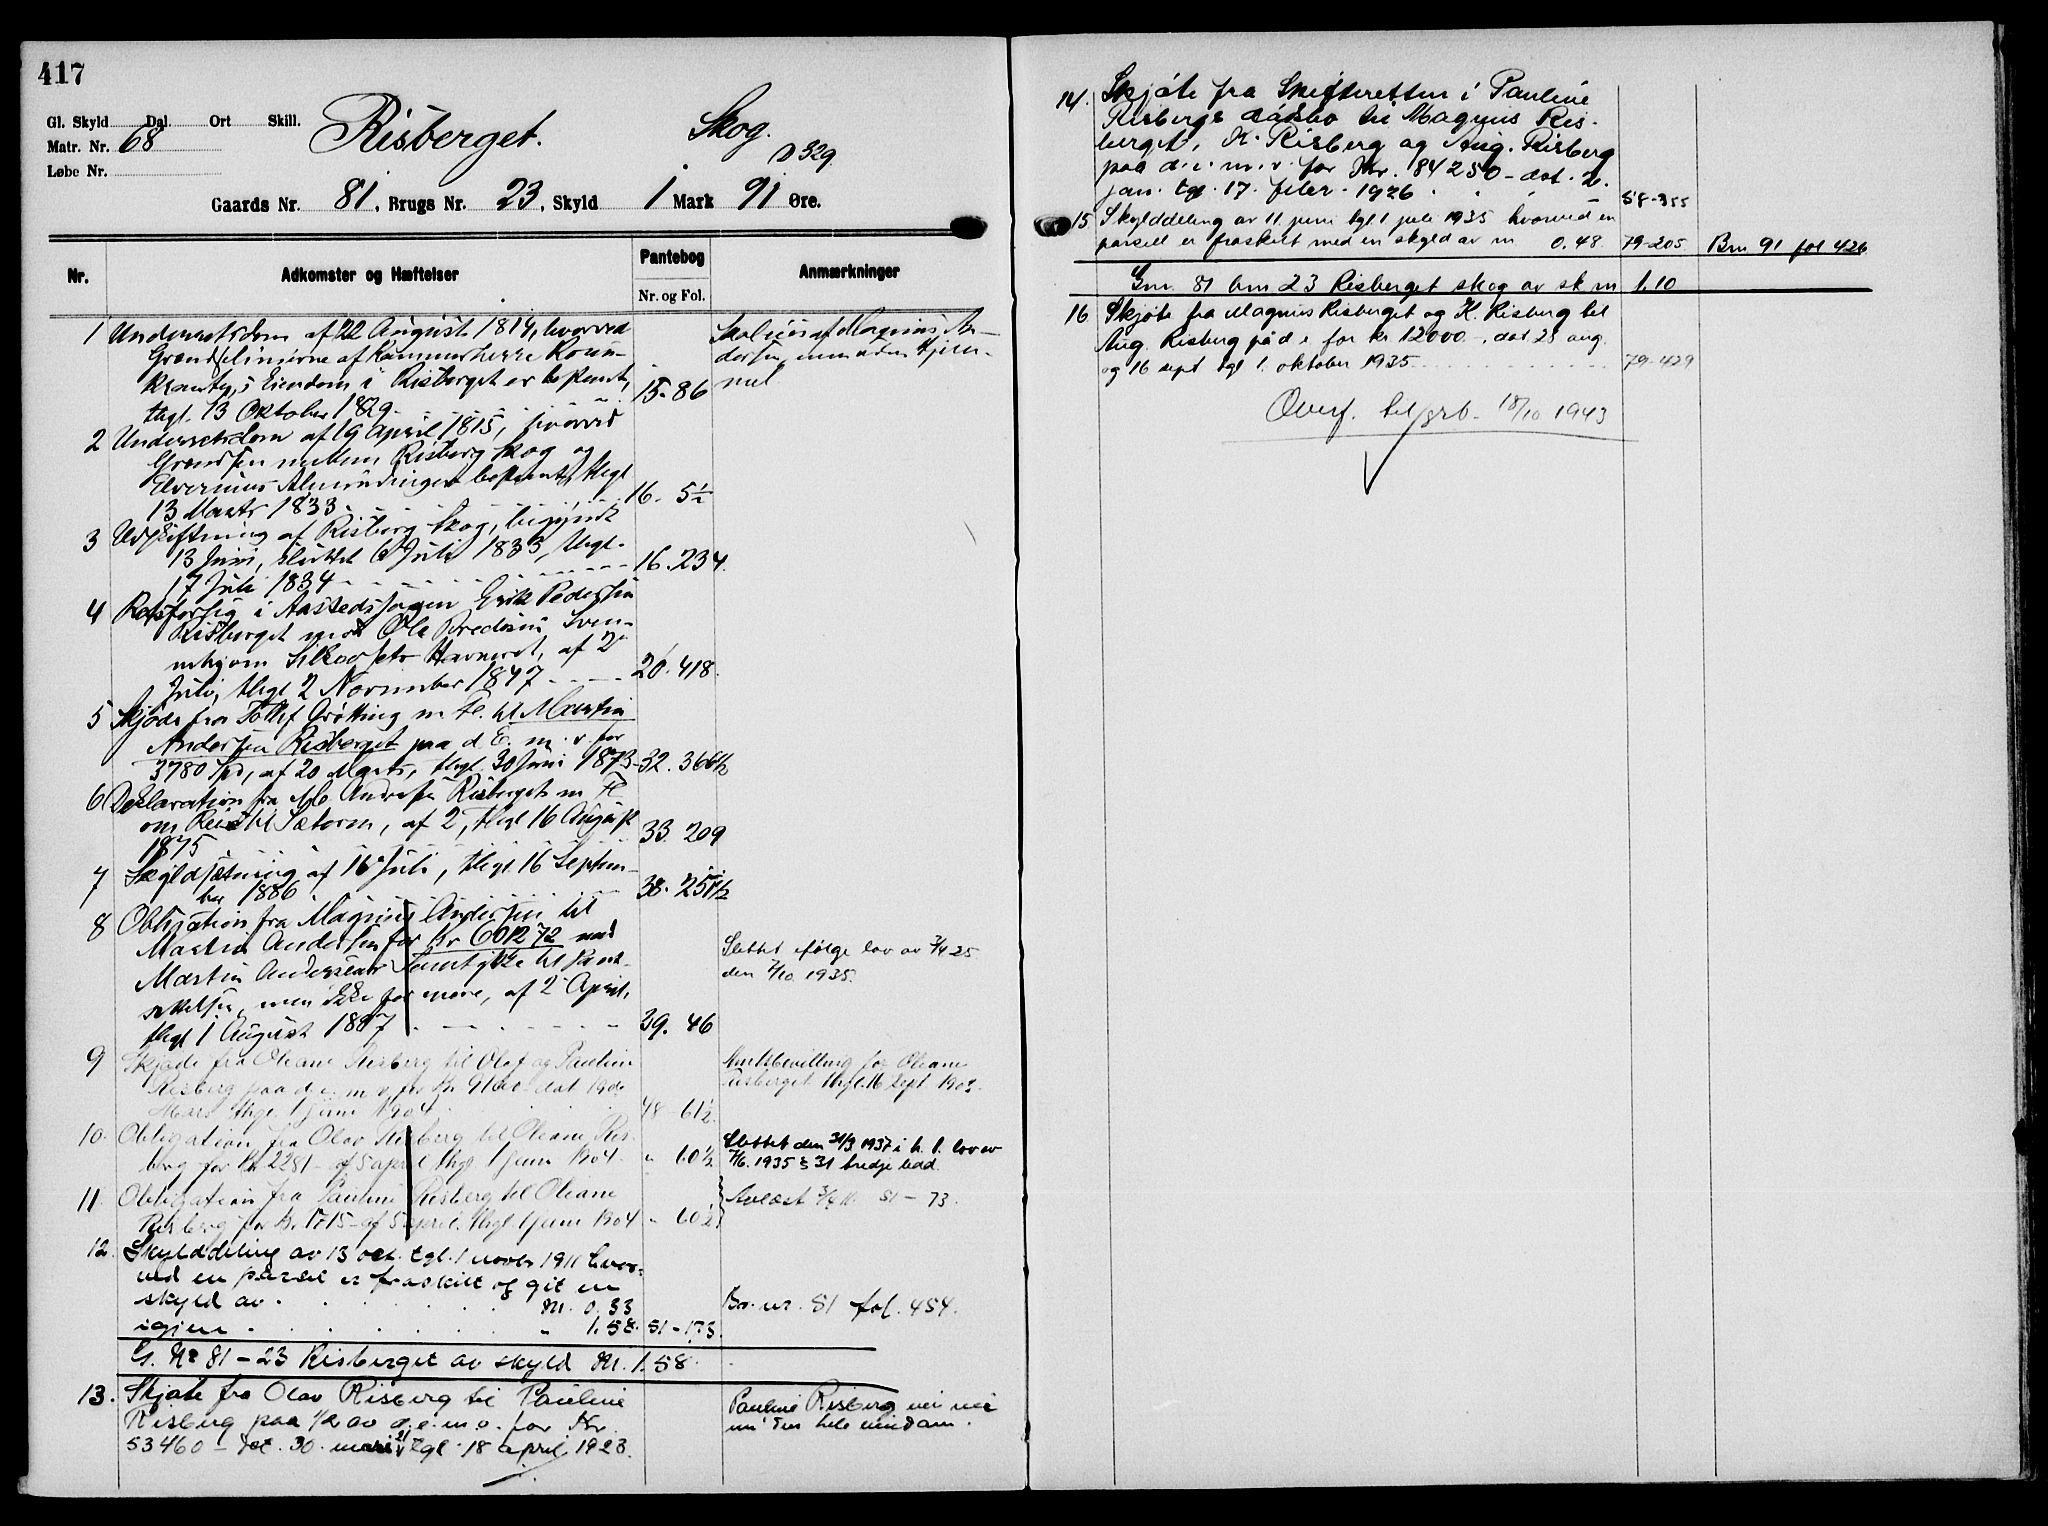 417
Gl. Skyld Dal. Ort Skill.
Matr. Nr. 68
Løbe Nr.
Risberget. Skog.
D 329
Gaards Nr. 81, Brugs Nr. 23, Skyld 1 Mark 91 Øre.
Nr. Adkomster og Hæftelser Pantebog Nr. og Fol. Anmærkninger
1 Underretsdom af 22 August 1814, hvorved
Grændselinierne af Kammerherre Rosen-
krantz's Eiendom i Risberget er bekemt,
thgl. 13 Oktober 1829. 15-86
Skal eies af Magnus An-
dersen
2 Underretsdom af 19 April 1815, hvorved
Grændsen mellem Risberg Skog og
Elverums Almindingen bekemt, thgl
13 Marts 1833 16. 5½
3 Udskiftning af Risberg Skog, begyndt
13 Juni, sluttet 6 Juli 1833, thgl.
17 Juli 1834 16. 234.
4 Retsforlig i Aastedssagen Erik Pedersen
Risberget mod Ole Bredesen Sven-
Havneret, af 2
Juli, thgl 2 November 1847 20. 418.
5 Skjøde fra Tollef Grøtting m Fl. til Martin
Andersen Risberget paa d. E. m. v. for
3780 Spd, af 20 Marts, thgl. 30 Juni 1873 32. 366½
6 Deklaration fra Andersen Risberget m Fl
om til Sæteren, af 2, thgl 16 August
1875 33. 209
7 Skyldsætning af 16 Juli, thgl 16 Septem-
ber 1886 38. 257½
8 Obligation fra Magnus Andersen til
Martin Andersen for Kr 6012 72 med
Martin Andersens Samtykke til Pant-
sættelsen, men ikke for mere, af 2 April,
thgl 1 August 1887 39. 46
Slettet ifølge lov av 3/4 25
den 7/10 1935.
9 Skjøde fra Oleane Risberg til Olaf og Pauline
Risberg paa d. e. m. v. for Kr dat
Mars thgl. 1 juni 1904 48 61½
Amtsbevilling for Oleane
Risberget thgl. 16 Sept 1902.
10. Obligation fra Olav Risberg til Oleane Ris-
berg for Kr. 2281 - af 5 april thgl. 1 juni 1904 " 60½
Slettet den 31/3 1937 i h. t. lov av
7/6. 1935 § 31 tredje ledd.
11. Obligation fra Pauline Risberg til Oleane
Risberg for Kr 1715 - af 5 april thgl. 1 juni 1904 " 60½
Avlæst 3/4 11. 51 - 73.
12. Skylddeling av 13 oct. tgl. 1 novbr 1911 hvor-
ved en parcel er fraskilt og git en
skyld av M. 0.33 Br. nr. 81 fol. 454.
igjen " 1.58. 51 - 173.
G. Nr 81 - 23 Risberget av skyld M. 1.58.
13. Skjøte fra Olav Risberg til Pauline
Risberg paa ½ av d. e. m. v. for Kr.
53460 - dat. 30. mars 21 tgl. 18 april 1923.
Pauline Risberg eier nu
den hele eiendom.
14. Skjøte fra Skifteretten i Pauline
Risbergs dødsbo til Magnus Ris-
berget, K. Risberg og Aug. Risberg
paa d. e. m. v. for Kr. 84250 - dat. 2.
jan. tgl. 17. febr. 1926 58-355
15 Skylddeling av 11 juni tgl 1 juli 1935 hvorved en
parsell er fraskilt med en skyld av m 0.48. 79-205 Brn 91 fol 426
Gnr. 81 bnr 23 Risberget skog av sk m 1.10
16 Skjøte fra Magnus Risberget og K. Risberg til
Aug. Risberg på d. e for kr 12000 -, dat 23 aug.
og 16 sept tgl 1. oktober 1935 79-429
Overf. til grb. 18/10 1943